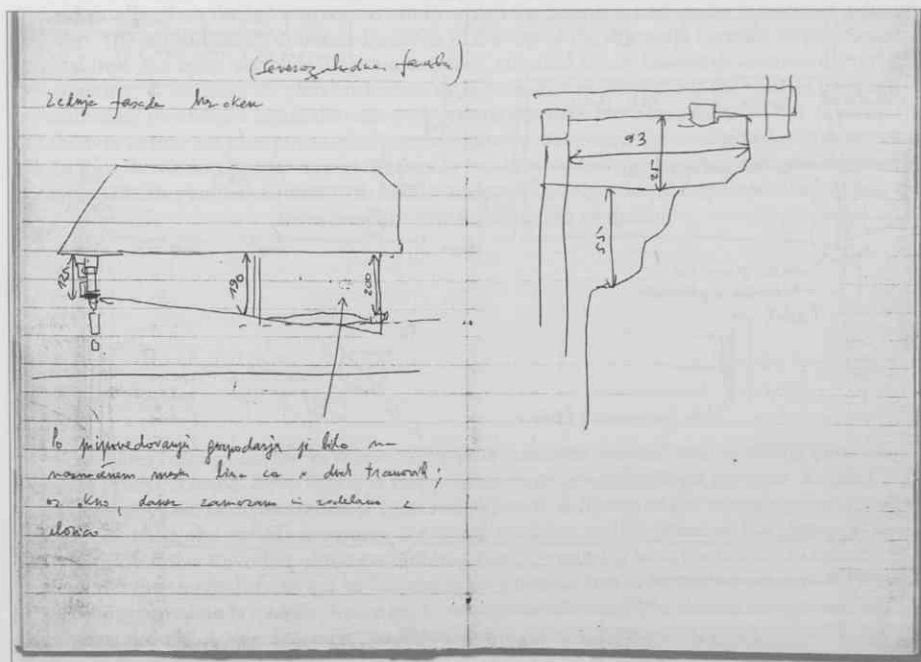 (Severozahodna fasada)
Zadnja fasada brez oken
93
125
190
200
Po pripovedovanju gospodarja je bila na
mestu lina v dveh tramovih;
oz. okno, danes zamazano in zadelano z
ilovico